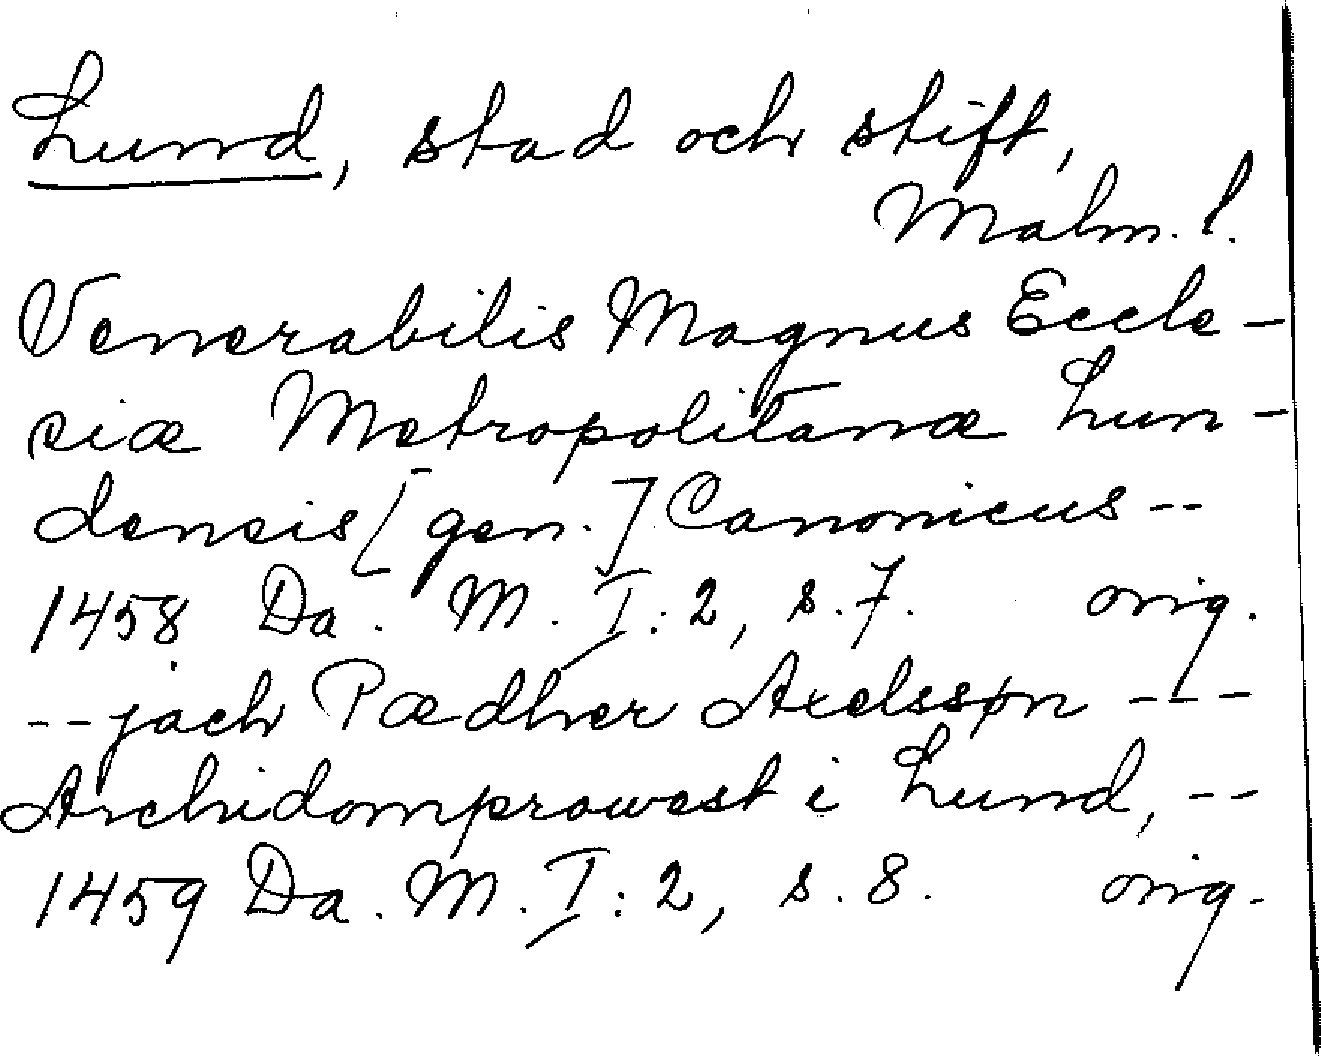 Lund, stad och stift,
Malm. l.
Venerabilis Magnus Eccle-
siæ Metropolitanæ Lun-
densis [gen.] Canonicus --
1458 Da. M. I: 2, s. 7. orig.
-- jach Pædher Axelsson ---
Archidomprowest i Lund, --
1459 Da. M. I: 2, s. 8. orig.